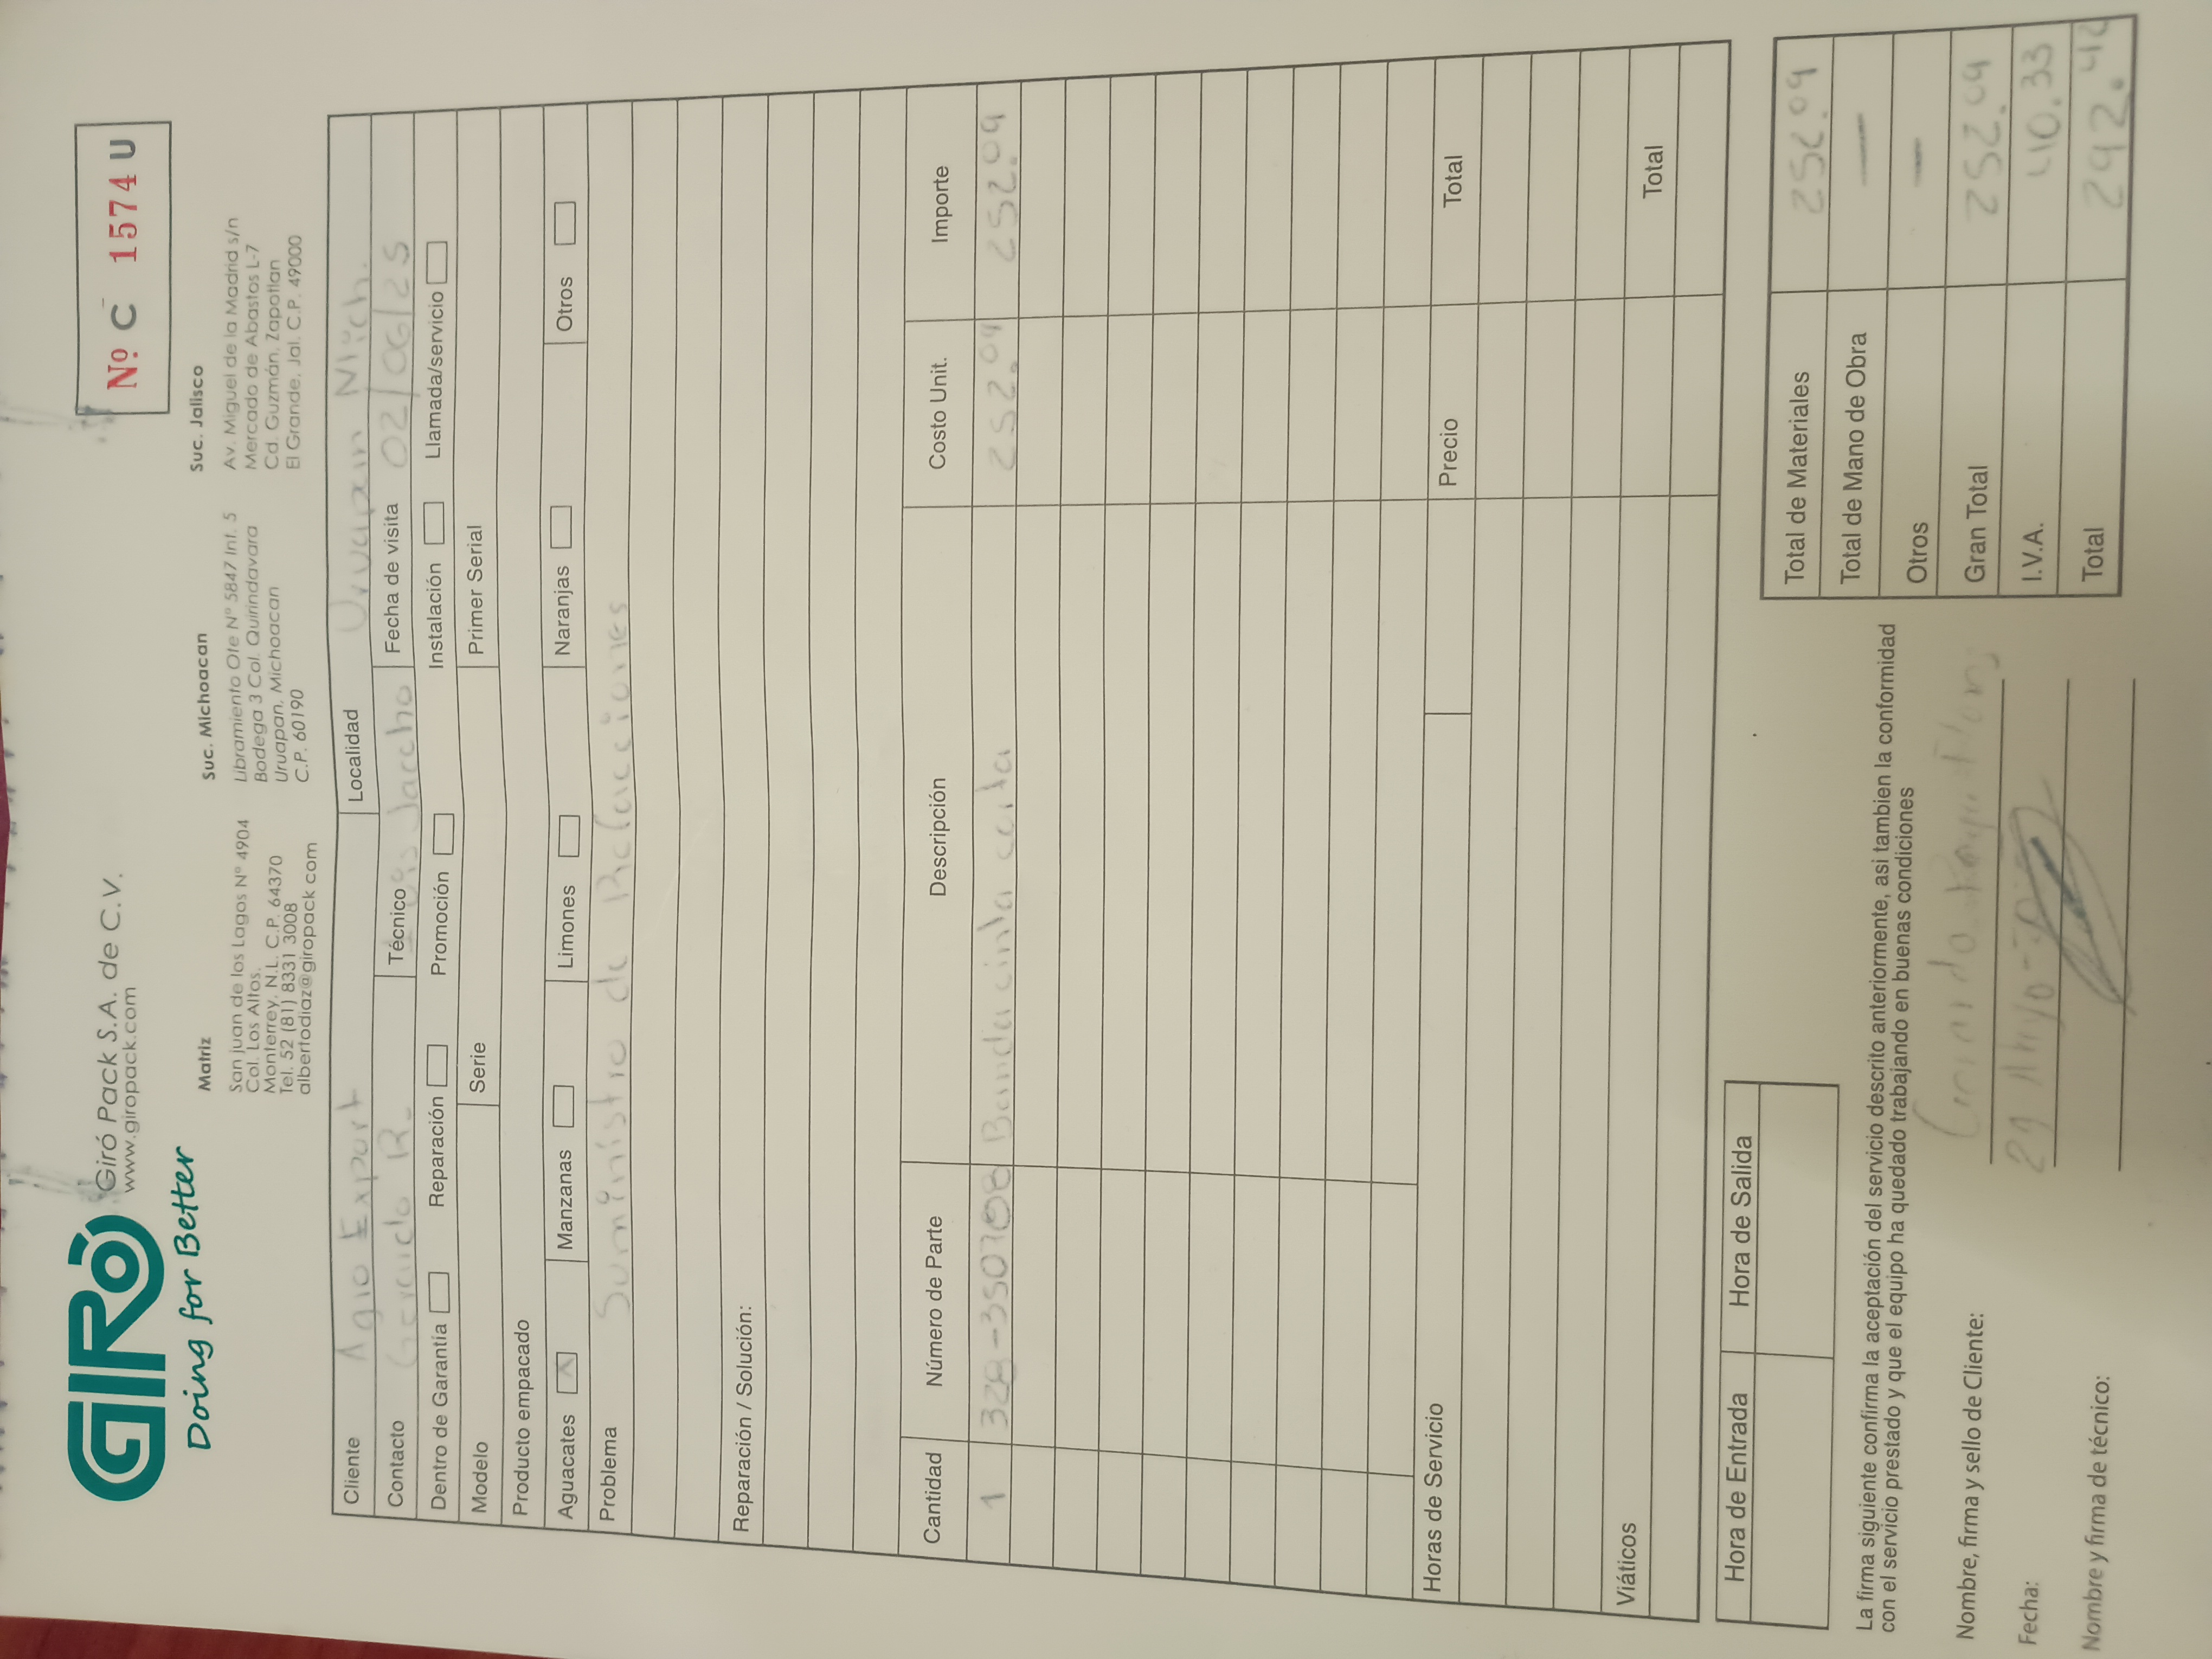 GIRÓ
Doing for Better
Giró Pack S.A. de C.V.
www.giropack.com
Nº C 1574 U
Matriz
San juan de los Lagos Nº 4904
Col. Los Altos.
Monterrey, N.L. C.P. 64370
Tel. 52 (81) 8331 3008
albertodiaz@giropack com
Suc. Michoacan
Libramiento Ote Nº 5847 Int. 5
Bodega 3 Col. Quirindavara
Uruapan, Michoacan
C.P. 60190
Suc. Jalisco
Av. Miguel de la Madrid s/n
Mercado de Abastos L-7
Cd. Guzmán, Zapotlan
El Grande, Jal. C.P. 49000
Cliente Agro Export Localidad Uruapan Mich.
Contacto Gerardo R. Técnico Fecha de visita 02/06/25
Dentro de Garantia Reparación Promoción Instalación Llamada/servicio
Modelo Serie Primer Serial
Producto empacado
Aguacates X Manzanas Limones Naranjas Otros
Problema Suministro de Refacciones
Reparación / Solución:
Cantidad Número de Parte Descripción Costo Unit. Importe
1 328-350708 Banda cinta corta 252.09 252.09
Horas de Servicio Precio Total
Viáticos Total
Hora de Entrada Hora de Salida
Total de Materiales 252.09
Total de Mano de Obra —
Otros —
Gran Total 252.09
I.V.A. 40.33
Total 292.42
La firma siguiente confirma la aceptación del servicio descrito anteriormente, asi tambien la conformidad
con el servicio prestado y que el equipo ha quedado trabajando en buenas condiciones
Nombre, firma y sello de Cliente:
Fecha: 29 Mayo
Nombre y firma de técnico: